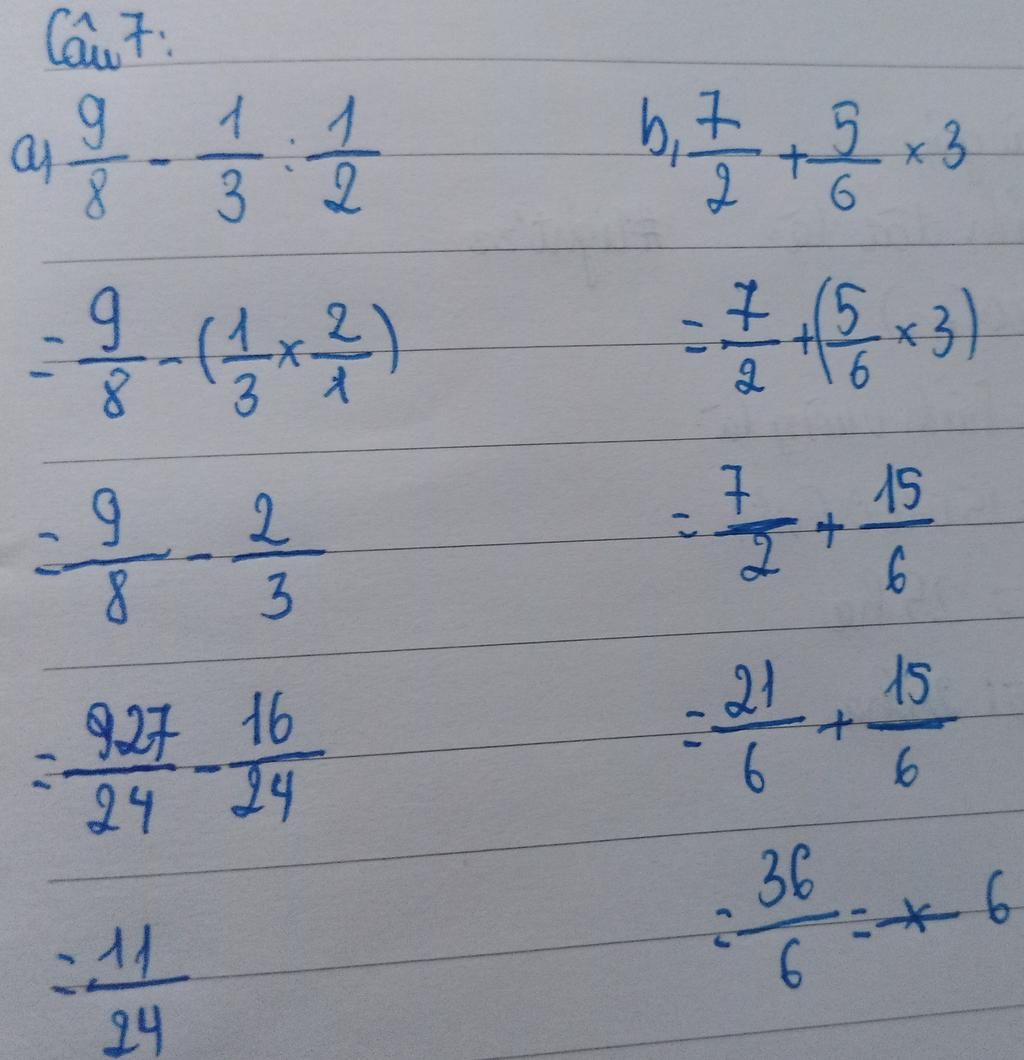 Câu 7:
a, 9/8 - 1/3 : 1/2
= 9/8 - (1/3 × 2/1)
= 9/8 - 2/3
= 927/24 - 16/24
= 11/24
b, 7/2 + 5/6 × 3
= 7/2 + (5/6 × 3)
= 7/2 + 15/6
= 21/6 + 15/6
= 36/6 = 6